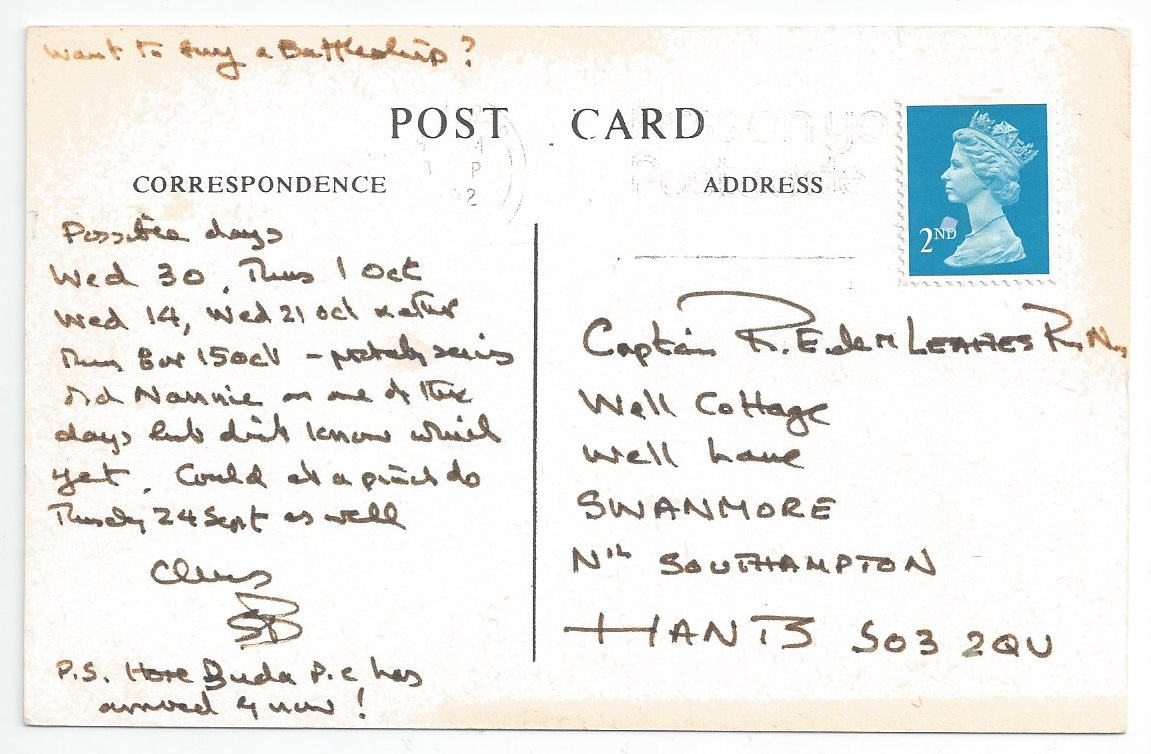 Want to buy a Battleship?
POST CARD
CORRESPONDENCE
ADDRESS
2ND
Possible days
Wed 30, Thurs 1 Oct
Wed 14, Wed 21 Oct
Thurs 15 Oct - probably seeing
old Nannie on one of these
days but don't know which
yet. Could at a pinch do
Thursday 24 Sept as well
Cheers
P.S. Hope Buda P.c has
arrived by now!
Captain R.E. de M LEATHES R.N.
Well Cottage
Well Lane
SWANMORE
Nth SOUTHAMPTON
HANTS SO3 2QU